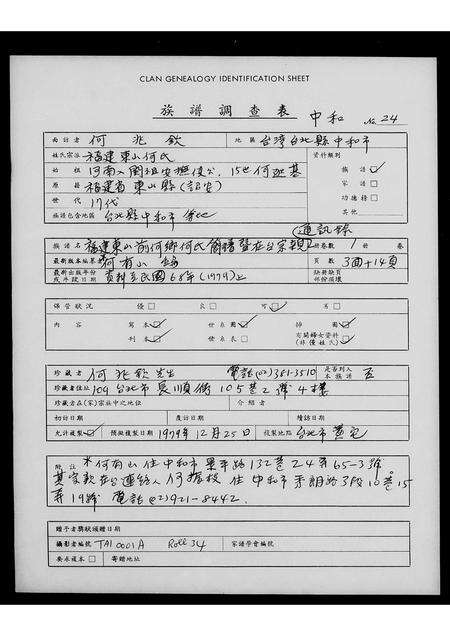 CLAN GENEALOGY IDENTIFICATION SHEET
族譜調查表 中和 No. 24
面訪者 何兆欽 地區 台灣台北縣中和市
姓氏宗派 福建東山何氏 資料類別
始祖 河南入閩祖安撫使公，15世何廷基 族譜 ✓
原籍 福建省東山縣 家譜
世代 17代 功德榜
族譜包含地區 台北縣中和市 其它
通訊錄
族譜名 福建東山前何鄉何氏簡譜暨在台宗親 冊卷數 1 冊卷
最新版本編纂者 何有山 編 頁數 3面+14頁
最新出版年份或手祿日期 資料至民國68年(1979)止 缺冊缺頁部份損壞
保管狀況 優 良 可 ✓ 劣
內容 寫本 ✓ 世系圖 ✓ 師團 ✓
刊本 ✓ 世系表 有關婦女資料(非僅姓氏) ✓
珍藏者 何兆欽先生 電話(02)381-3510 是否列入本族譜 否
珍藏者住址 104台北市長順街105巷2號4樓
珍藏者在(家)宗族中之地位 介紹者
初訪日期 度訪日期 續訪日期
允許複製 ✓ 開始複製日期 1979年12月25日 複製地點 台北市
附註 *何有山住中和市景平路132巷24弄65-3號。
其宗親在台連絡人何振枝住中和市景朗路3段10巷15
弄19號 電話(02)921-8442.
贈予者獎狀頒贈日期
攝影者編號 TAI 0001A Roll 34 家譜學會編號
要求複本 寄贈地址